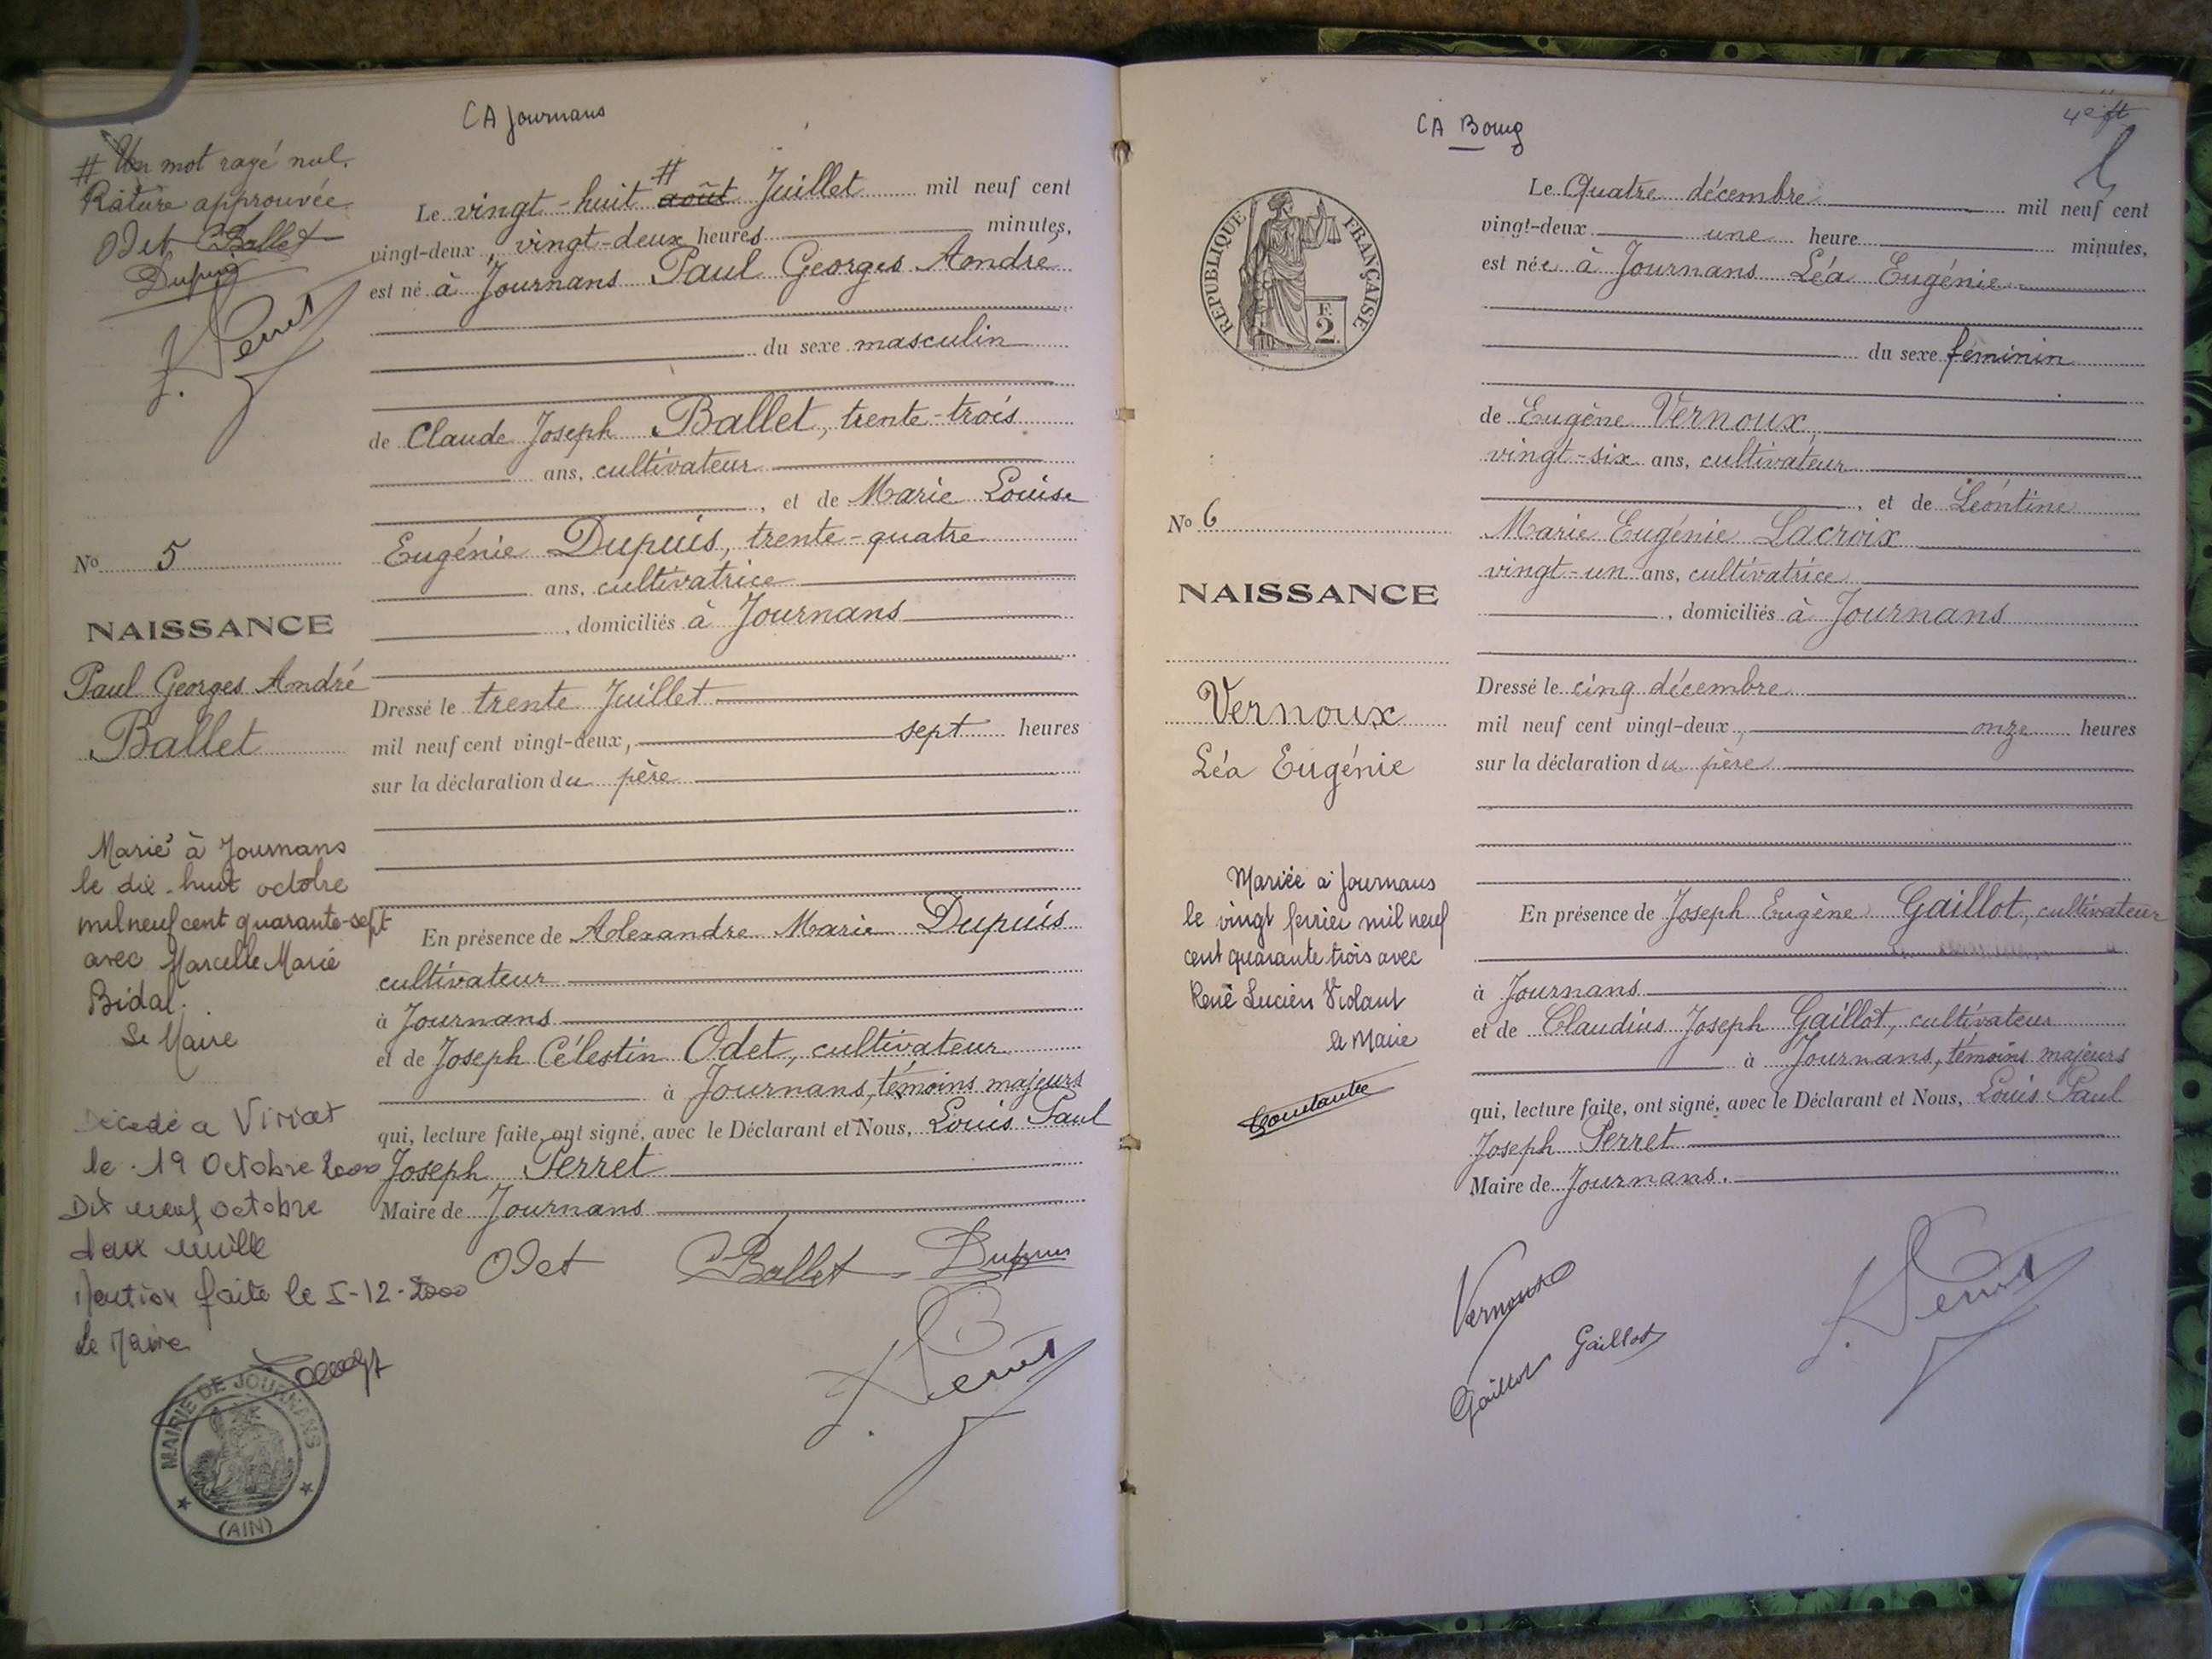 CA Journans
# Un mot rayé nul.
Rature approuvée
Odet Ballet
Dupuis
J. Perret
Le vingt-huit # août Juillet mil neuf cent
vingt-deux, vingt-deux heures minutes,
est né à Journans Paul Georges André
du sexe masculin
de Claude Joseph Ballet, trente-trois
ans, cultivateur
, et de Marie Louise
Eugénie Dupuis, trente-quatre
ans, cultivatrice
, domiciliés à Journans
Dressé le trente Juillet
mil neuf cent vingt-deux, sept heures
sur la déclaration du père
En présence de Alexandre Marie Dupuis
cultivateur
à Journans
et de Joseph Célestin Odet, cultivateur
à Journans, témoins majeurs
qui, lecture faite, ont signé, avec le Déclarant et Nous, Louis Paul
Joseph Perret
Maire de Journans
Odet Ballet Dupuis
J. Perret
No 5
NAISSANCE
Paul Georges André
Ballet
Marié à Journans
le dix-huit octobre
mil neuf cent quarante-sept
avec Marcelle Marie
Bidal.
Le Maire
Décédé a Viriat
le 19 Octobre 2000
Dix neuf octobre
deux mille
Mention faite le 5-12-2000
Le Maire
MAIRIE DE JOURNANS
(AIN)
CA Bourg
REPUBLIQUE FRANÇAISE
F.
2.
Le Quatre décembre mil neuf cent
vingt-deux une heure minutes,
est née à Journans Léa Eugénie
du sexe féminin
de Eugène Vernoux
vingt-six ans, cultivateur
, et de Léontine
Marie Eugénie Lacroix
vingt-un ans, cultivatrice
, domiciliés à Journans
Dressé le cinq décembre
mil neuf cent vingt-deux, onze heures
sur la déclaration du père
En présence de Joseph Eugène Gaillot, cultivateur
à Journans
et de Claudius Joseph Gaillot, cultivateur
à Journans, témoins majeurs
qui, lecture faite, ont signé, avec le Déclarant et Nous, Louis Paul
Joseph Perret
Maire de Journans.
Vernoux
Gaillot Gaillot
J. Perret
No 6
NAISSANCE
Vernoux
Léa Eugénie
Mariée a Journans
le vingt fevrier mil neuf
cent quarante trois avec
René Lucien Violant
le Maire